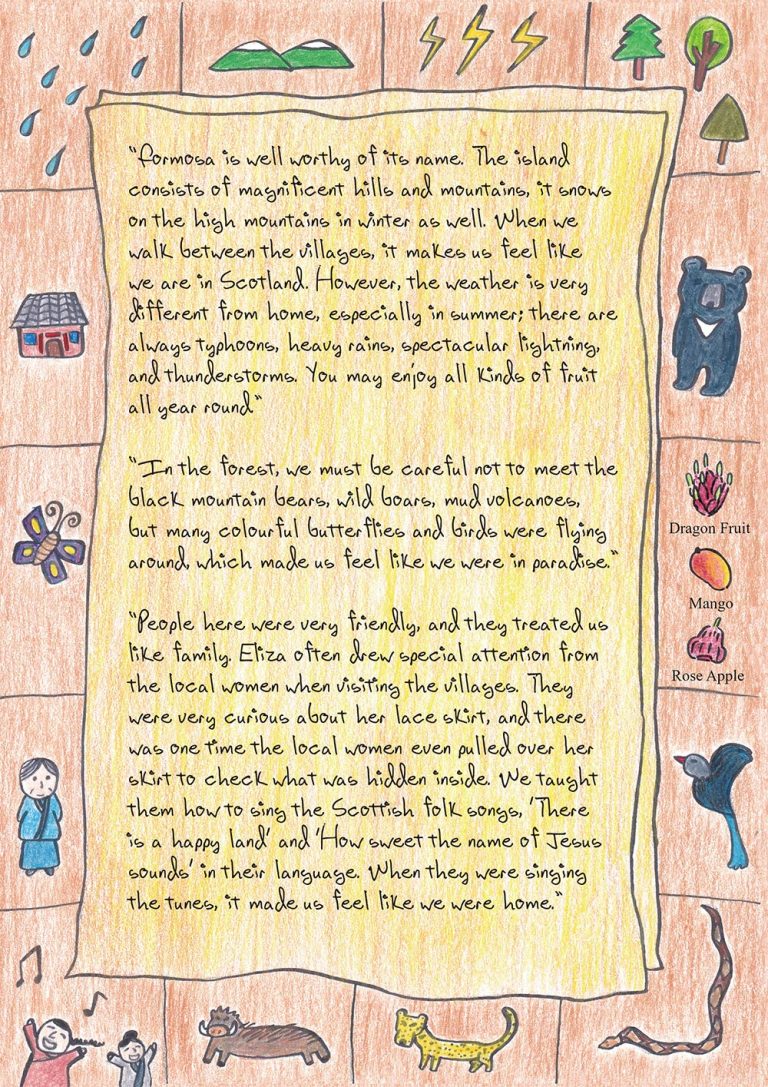 "Formosa is well worthy of its name. The island
consists of magnificent hills and mountains, it snows
on the high mountains in winter as well. When we
walk between the villages, it makes us feel like
we are in Scotland. However, the weather is very
different from home, especially in summer; there are
always typhoons, heavy rains, spectacular lightning,
and thunderstorms. You may enjoy all kinds of fruit
all year round"
"In the forest, we must be careful not to meet the
black mountain bears, wild boars, mud volcanoes,
but many colourful butterflies and birds were flying
around, which made us feel like we were in paradise."
"People here were very friendly, and they treated us
like family. Eliza often drew special attention from
the local women when visiting the villages. They
were very curious about her lace skirt, and there
was one time the local women even pulled over her
skirt to check what was hidden inside. We taught
them how to sing the Scottish folk songs, 'There
is a happy land' and 'How sweet the name of Jesus
sounds' in their language. When they were singing
the tunes, it made us feel like we were home."
Dragon Fruit
Mango
Rose Apple